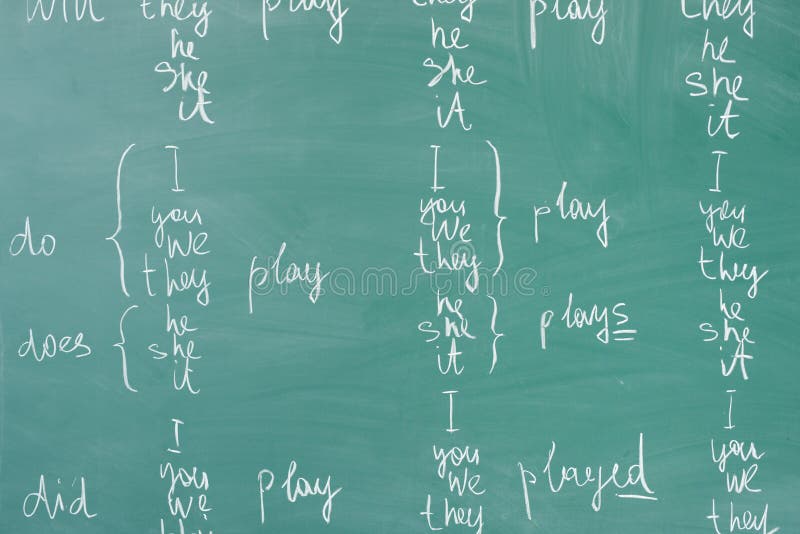 will they play they play they
he he he
she she she
it it it
I I I
you you play you
do we we we
they play they they
he he plays he
does she she she
it it it
I I I
you you played you
did we play we we
they they
dreamstime